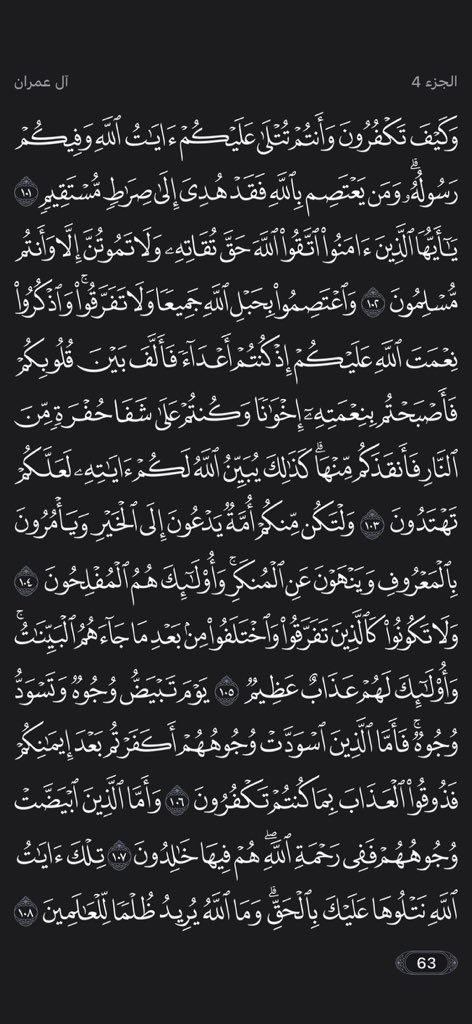 الجزء 4
آل عمران
وَكَيۡفَ تَكۡفُرُونَ وَأَنتُمۡ تُتۡلَىٰ عَلَيۡكُمۡ ءَايَٰتُ ٱللَّهِ وَفِيكُمۡ
رَسُولُهُۥۗ وَمَن يَعۡتَصِم بِٱللَّهِ فَقَدۡ هُدِيَ إِلَىٰ صِرَٰطٖ مُّسۡتَقِيمٖ ١٠١
يَٰٓأَيُّهَا ٱلَّذِينَ ءَامَنُواْ ٱتَّقُواْ ٱللَّهَ حَقَّ تُقَاتِهِۦ وَلَا تَمُوتُنَّ إِلَّا وَأَنتُم
مُّسۡلِمُونَ ١٠٢ وَٱعۡتَصِمُواْ بِحَبۡلِ ٱللَّهِ جَمِيعٗا وَلَا تَفَرَّقُواْۚ وَٱذۡكُرُواْ
نِعۡمَتَ ٱللَّهِ عَلَيۡكُمۡ إِذۡ كُنتُمۡ أَعۡدَآءٗ فَأَلَّفَ بَيۡنَ قُلُوبِكُمۡ
فَأَصۡبَحۡتُم بِنِعۡمَتِهِۦٓ إِخۡوَٰنٗا وَكُنتُمۡ عَلَىٰ شَفَا حُفۡرَةٖ مِّنَ
ٱلنَّارِ فَأَنقَذَكُم مِّنۡهَاۗ كَذَٰلِكَ يُبَيِّنُ ٱللَّهُ لَكُمۡ ءَايَٰتِهِۦ لَعَلَّكُمۡ
تَهۡتَدُونَ ١٠٣ وَلۡتَكُن مِّنكُمۡ أُمَّةٞ يَدۡعُونَ إِلَى ٱلۡخَيۡرِ وَيَأۡمُرُونَ
بِٱلۡمَعۡرُوفِ وَيَنۡهَوۡنَ عَنِ ٱلۡمُنكَرِۚ وَأُوْلَٰٓئِكَ هُمُ ٱلۡمُفۡلِحُونَ ١٠٤
وَلَا تَكُونُواْ كَٱلَّذِينَ تَفَرَّقُواْ وَٱخۡتَلَفُواْ مِنۢ بَعۡدِ مَا جَآءَهُمُ ٱلۡبَيِّنَٰتُۚ
وَأُوْلَٰٓئِكَ لَهُمۡ عَذَابٌ عَظِيمٞ ١٠٥ يَوۡمَ تَبۡيَضُّ وُجُوهٞ وَتَسۡوَدُّ
وُجُوهٞۚ فَأَمَّا ٱلَّذِينَ ٱسۡوَدَّتۡ وُجُوهُهُمۡ أَكَفَرۡتُم بَعۡدَ إِيمَٰنِكُمۡ
فَذُوقُواْ ٱلۡعَذَابَ بِمَا كُنتُمۡ تَكۡفُرُونَ ١٠٦ وَأَمَّا ٱلَّذِينَ ٱبۡيَضَّتۡ
وُجُوهُهُمۡ فَفِي رَحۡمَةِ ٱللَّهِۖ هُمۡ فِيهَا خَٰلِدُونَ ١٠٧ تِلۡكَ ءَايَٰتُ
ٱللَّهِ نَتۡلُوهَا عَلَيۡكَ بِٱلۡحَقِّۗ وَمَا ٱللَّهُ يُرِيدُ ظُلۡمٗا لِّلۡعَٰلَمِينَ ١٠٨
63